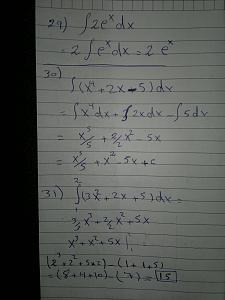 29) ∫2e^x dx
= 2 ∫e^x dx = 2 e^x
30)
∫(x^4 + 2x - 5) dx
= ∫x^4 dx + ∫2x dx - ∫5 dx
= x^5/5 + 2/2 x^2 - 5x
= x^5/5 + x^2 - 5x + c
31) ∫(3x^2 + 2x + 5) dx =
3/3 x^3 + 2/2 x^2 + 5x
x^3 + x^2 + 5x |
[2^3 + 2^2 + 5x2] - (1 + 1 + 5)
= (8 + 4 + 10) - (7) = 15